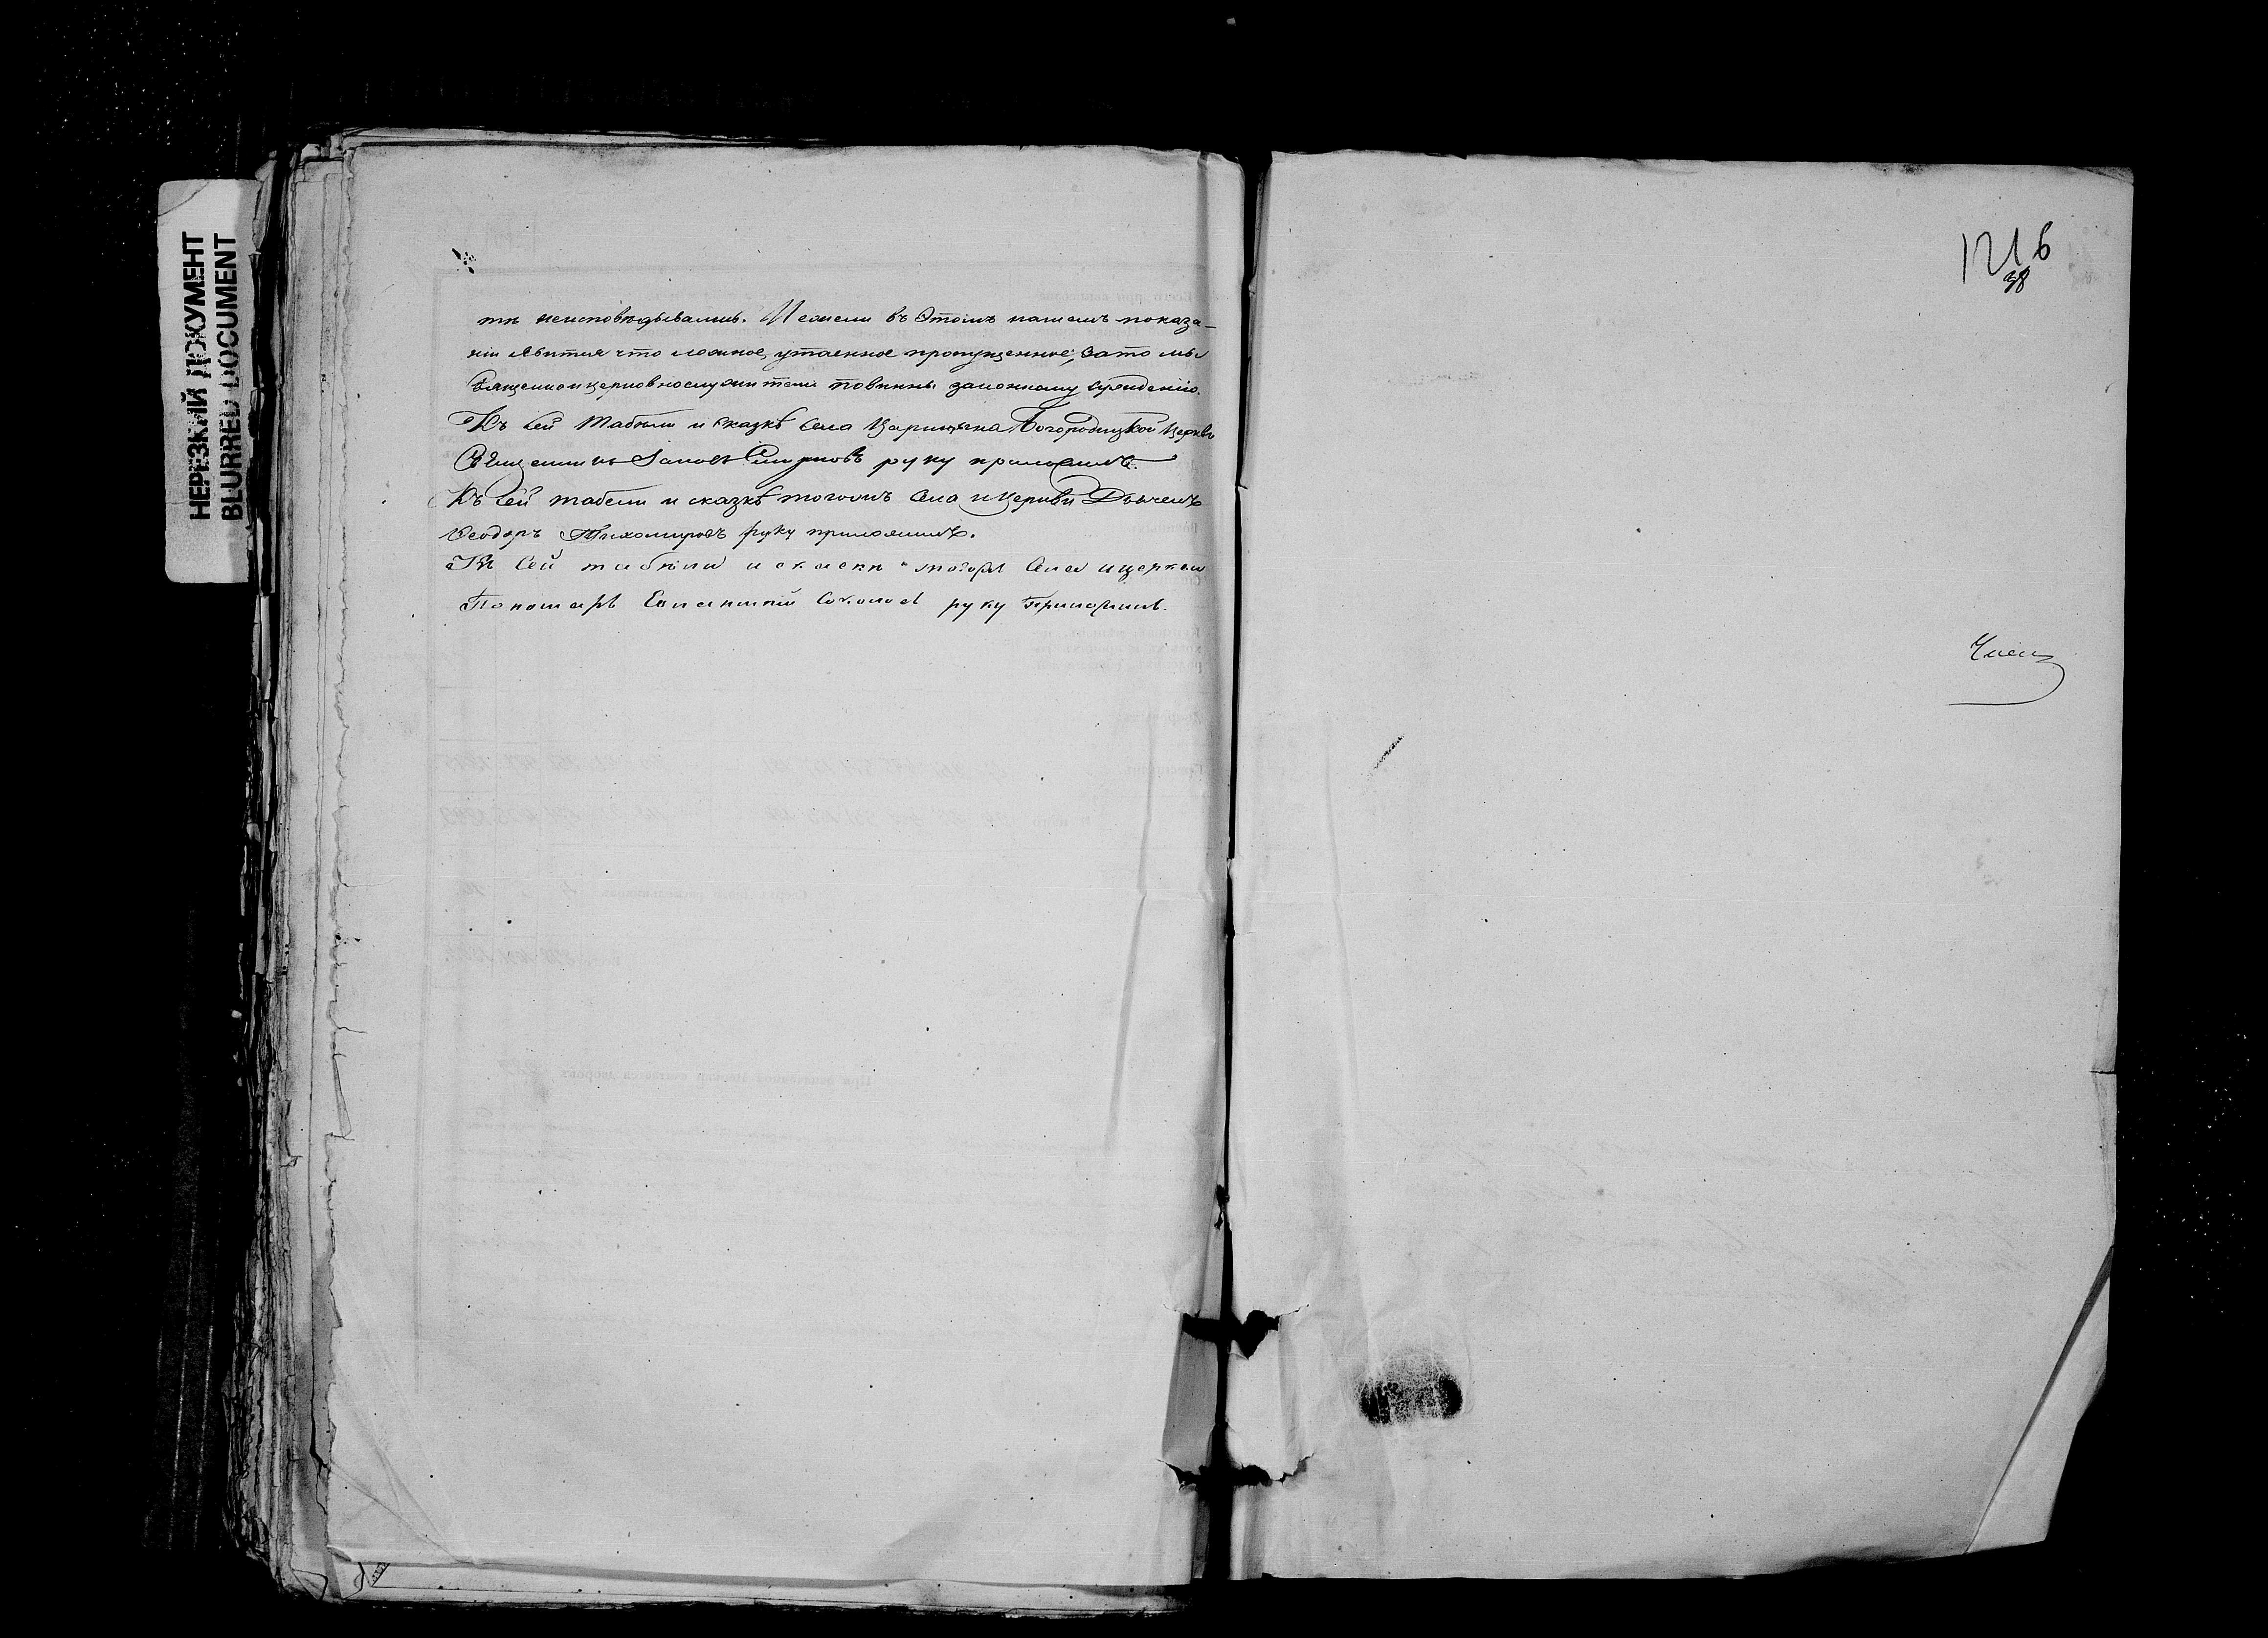 НЕРЕЗКИЙ ДОКУМЕНТ
BLURRED DOCUMENT
ты неисповѣдывались. И ежели въ Этомъ нашемъ показа-
ніи явится что ложное, утаенное пропущенное, за то мы
Священноицерковнослужители повинны законному сужденію.
Къ сей табели и сказкѣ села Царицына Богородицкой Церкви
Священникъ Смирновъ руку приложилъ.
Къ сей табели и сказкѣ тогожъ села и церкви Дьячекъ
Ѳеодоръ Тихомировъ руку приложилъ.
Къ сей табели и сказки тогожъ села и церкви
Пономарь Соколовъ руку приложилъ.
1216
38